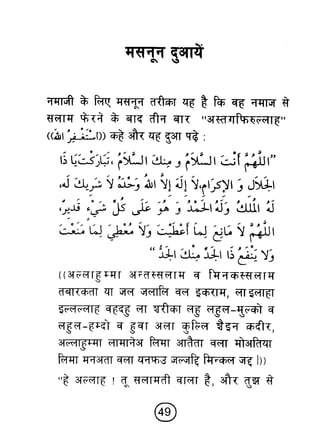 मसनून दुआयें
नमाजी के लिए मसनून तरीक़ा यह है कि वह नमाज से
सलाम फेरने के बाद तीन बार "अस्तगफिरुल्लाह"
((اَسْتَغْفِرُ اللهَ)) कहे और यह दुआ पढ़े :
"اَللّٰهُمَّ أَنْتَ السَّلَامُ وَ مِنْكَ السَّلَامُ ،تَبَارَكْتَ يَا ذَا
الْجَلَالِ وَ الإِكْرَامِ،لَا إِلَهَ إِلَّا اللهُ وَحْدَهُ لَا شَرِيكَ لَه،
لَهُ الْمُلْكُ وَلَهُ الْحَمْدُ وَ هُوَ عَلَى كُلِّ شَيْءٍ قَدِيرٌ،
اَللّٰهُمَّ لَا مَانِعَ لِمَا أَعْطَيْتَ وَلَا مُعْطِيَ لِمَا مَنَعْتَ
وَلَا يَنْفَعُ ذَا الْجَدِّ مِنْكَ الْجَدُّ"
((अल्लाहुम्मा अन्तस्सलाम व मिनकस्सलाम
तबारकता या जल जलालि वल इकराम, ला इलाहा
इल्लल्लाह वहदहु ला शरीका लहु लहुल-मुल्को व
लहुल-हम्दो व हुवा अला कुल्लि शैइन कदीर,
अल्लाहुम्मा लामानेअ लिमा आतैता वला मोअतिया
लिमा मनअता वला यनफउ जल्जद्दि मिन्कल जद्द।))
"हे अल्लाह ! तू सलामती वाला है, और तुझ से
49